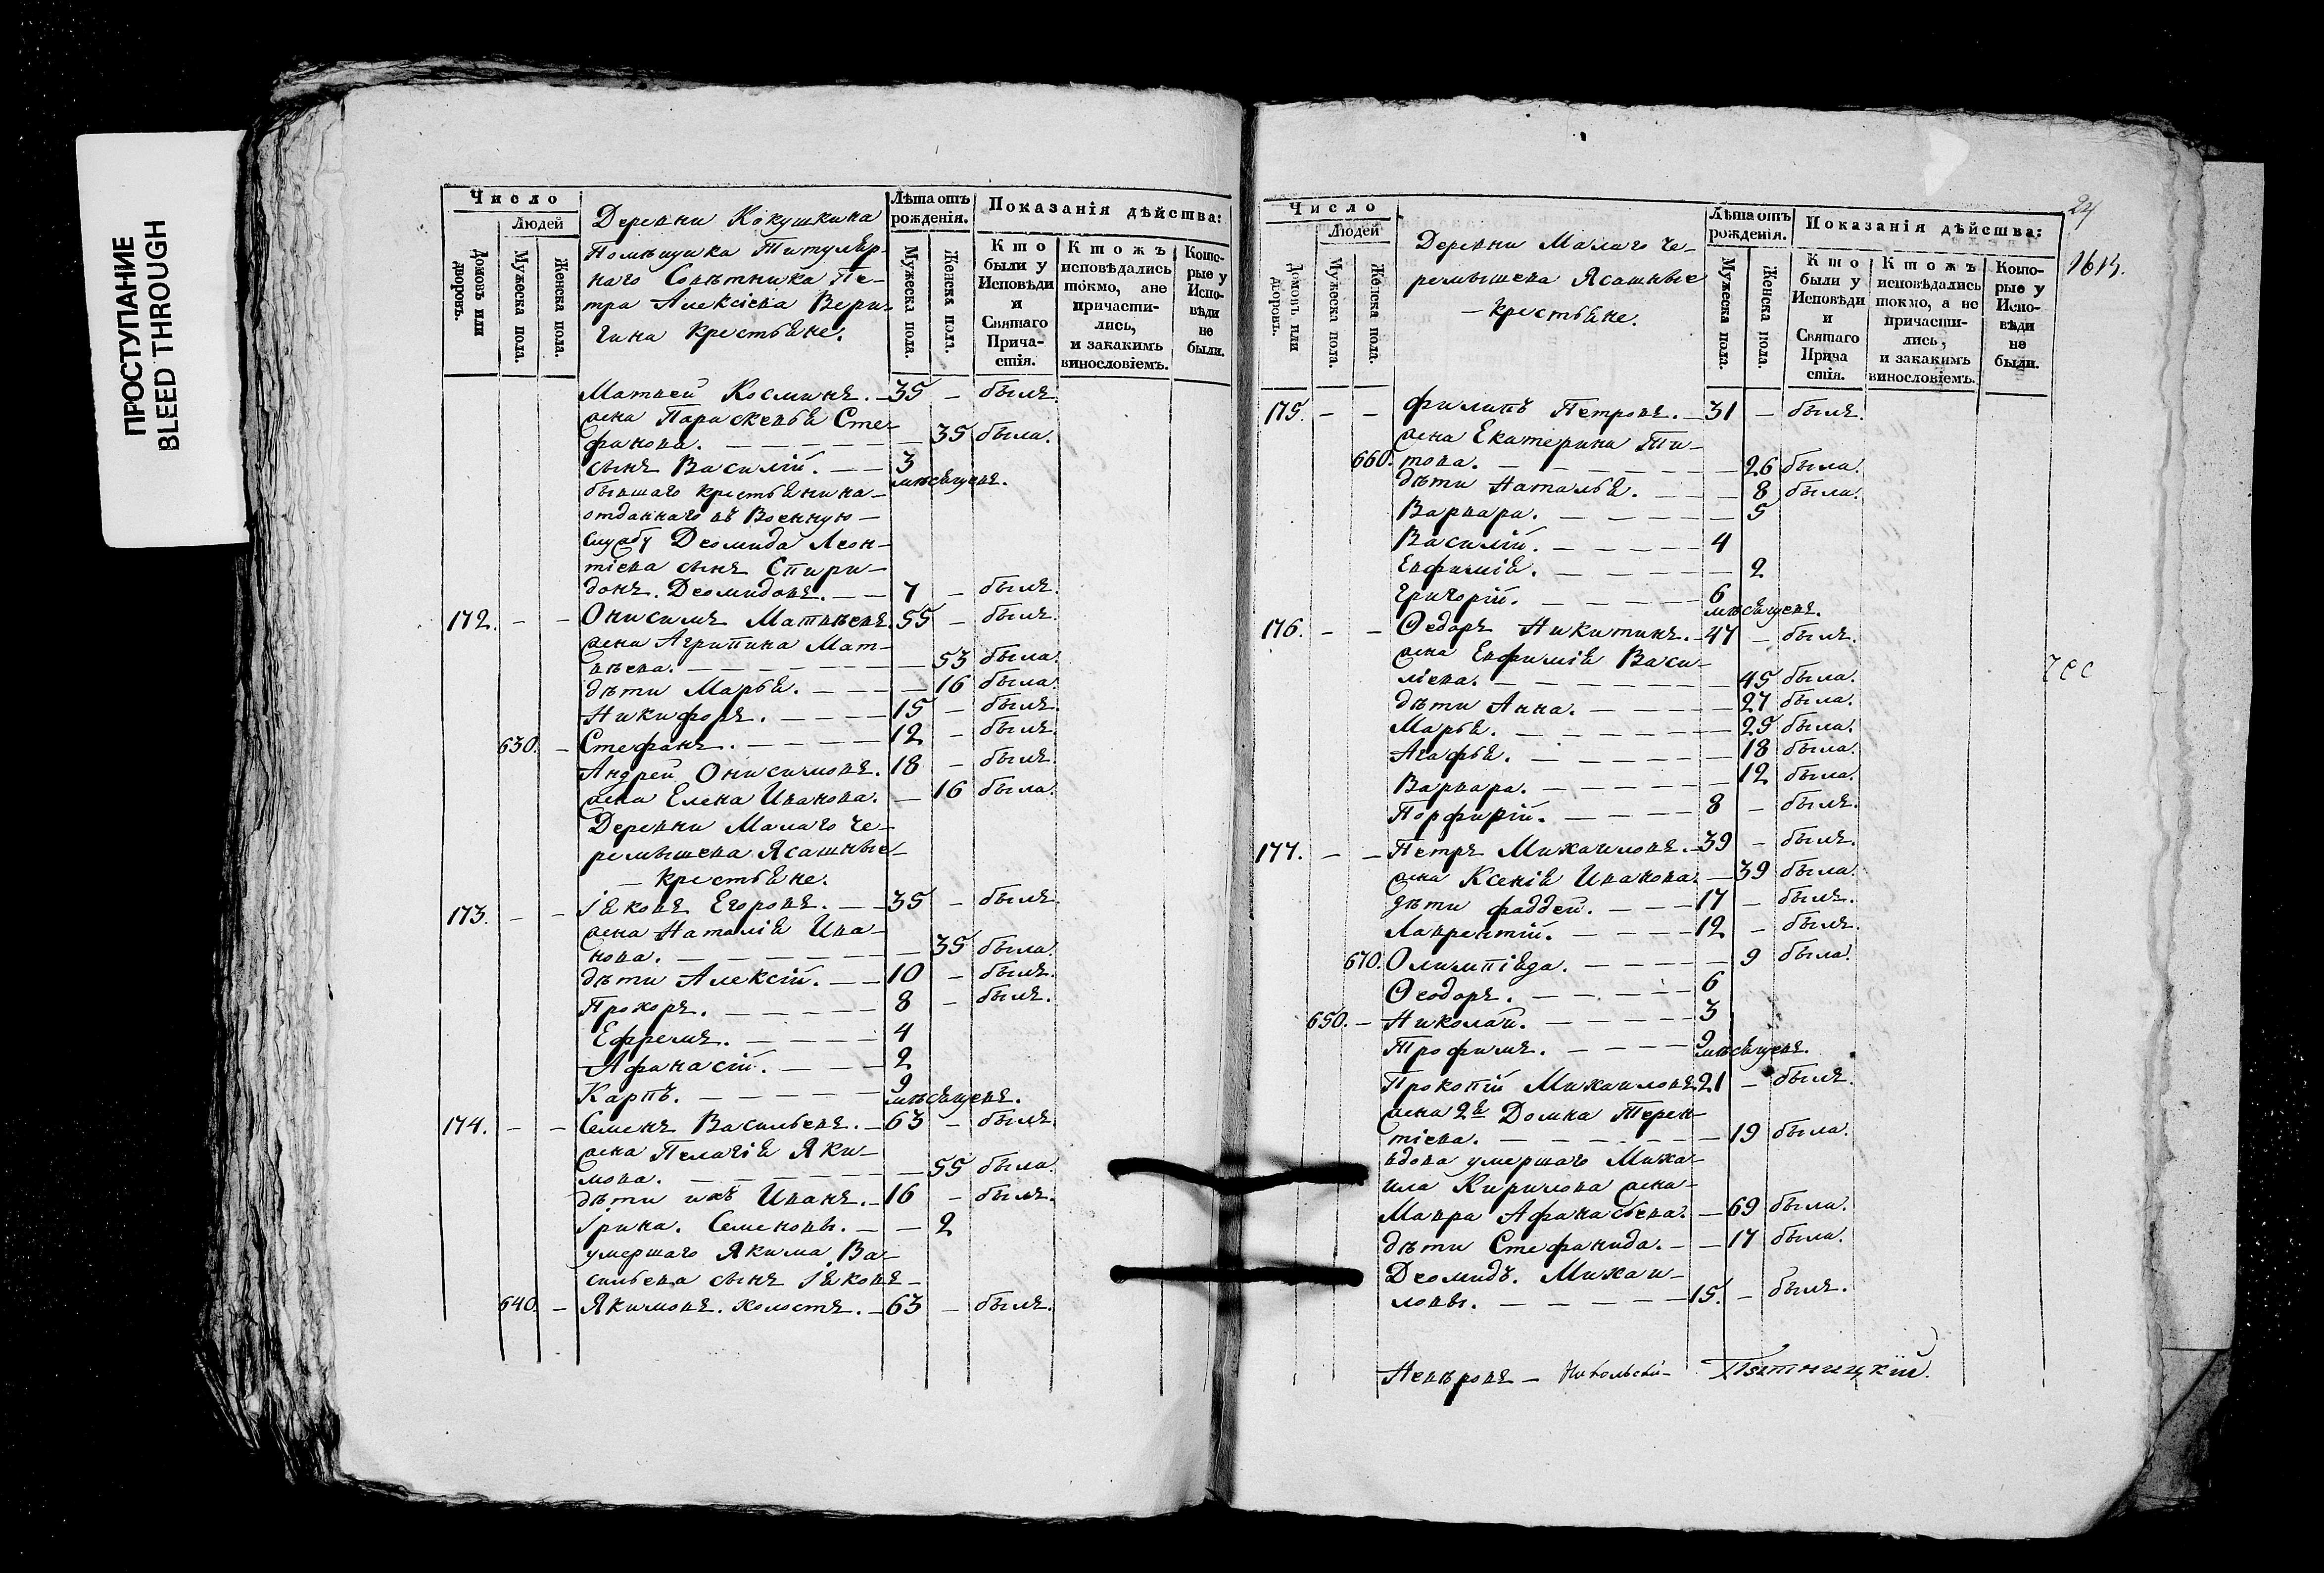 ПРОСТУПАНИЕ
BLEED THROUGH
Число
Людей
Домовъ или дворовъ.
Мужеска пола.
Женска пола.
Деревни Кокушкина
Помѣщика Титуляр-
наго Совѣтника Пе-
тра Алексіева Вери-
гина крестьяне.
Лѣта отъ рожденія.
Мужеска пола.
Женска пола.
Показанія дѣйства:
Кто были у Исповѣди и Святаго Прича-стія.
Ктожъ исповѣдались токмо, ане причасти-лись, и закакимъ винословіемъ.
Кото-рые у Испо-вѣди не были.
Матвей Косминъ. - 35 - былъ.
жена Параскевья Сте-
фанова. - - - - 35 была.
сынъ Василій. - - 3
мѣсяцевъ.
бывшаго крестьянина-
отданнаго въ Военную-
службу Деомида Леон-
тіева сынъ Спири-
донъ. Деомидовъ. - - 7 - былъ.
172. - - Онисимъ Матвѣевъ. 55 - былъ.
жена Агрипина Мат-
вѣева. - - - - 53 была.
дѣти Марья. - - - 16 была.
Никифоръ. - - - - 15 - былъ.
630. - Стефанъ. - - - - 12 - былъ.
Андрей Онисимовъ. 18 - былъ.
жена Елена Иванова. - 16 была.
Деревни Малаго Че-
ремышева Ясашные-
- крестьяне.
173. - - Іяковъ Егоровъ. - - 35 - былъ.
жена Наталія Ива-
нова. - - - - 35 была.
дѣти Алексій. - - 10 - былъ.
Прохоръ. - - - - 8 - былъ.
Ефремъ. - - - - 4
Афанасій. - - - 2
Карпъ. - - - - 9
мѣсяцевъ.
174. - - Семенъ Васильевъ. - 63 - былъ.
жена Пелагія Яки-
мова. - - - - 55 была.
дѣти ихъ Иванъ. - 16 - былъ.
Ірина. Семеновы. - - 2
умершаго Якима Ва-
сильева сынъ Іяковъ-
640. - Якимовъ. холостъ. - 63 - былъ.
Число
Людей
Домовъ или дворовъ.
Мужеска пола.
Женска пола.
Деревни Малаго Че-
ремышева Ясашные
- крестьяне.
Лѣта отъ рожденія.
Мужеска пола.
Женска пола.
Показанія дѣйства:
Кто были у Исповѣди и Святаго Прича стія.
Ктожъ исповѣдались токмо, а не причасти-лись, и закакимъ винословіемъ.
Кото-рые у Испо-вѣди не были.
24
175. - - Филипъ Петровъ. - 31 - былъ.
жена Екатерина Ти-
660. това. - - - - 26 была.
дѣти Наталья. - - - 8 была.
Варвара. - - - - 5
Василій. - - - - 4
Евфимія. - - - - 2
Григорій. - - - - 6
мѣсяцевъ.
176. - - Ѳедоръ Никитинъ. - 47 - былъ.
жена Евфимія Васи-
ліева. - - - - 45 была.
дѣти Анна. - - - - 27 была.
Марья. - - - - 25 была.
Агафья. - - - - 18 была.
Варвара. - - - - 12 была.
Порфирій. - - - - 8 - былъ.
177. - - Петръ Михаиловъ. - 39 - былъ.
жена Ксенія Иванова. - 39 была.
дѣти Фаддей. - - - 17 - былъ.
Лаврентій. - - - - 12 - былъ.
670. Олимпіяда. - - - - 9 была.
Ѳеодоръ. - - - - 6
650. - Николай. - - - - 3
Трофимъ. - - - - 9
мѣсяцевъ.
Прокопій Михаиловъ 21 - былъ.
жена 2я Домна Терен-
тіева. - - - - 19 была.
вдова умершаго Миха-
ила Кирилова жена-
Мавра Афанасьева. - 69 была.
дѣти Стефанида. - - 17 была.
Деомидъ. Михаи-
ловы. - - - - 15. - былъ.
Невѣровъ - Никольскій - Пятницкій.